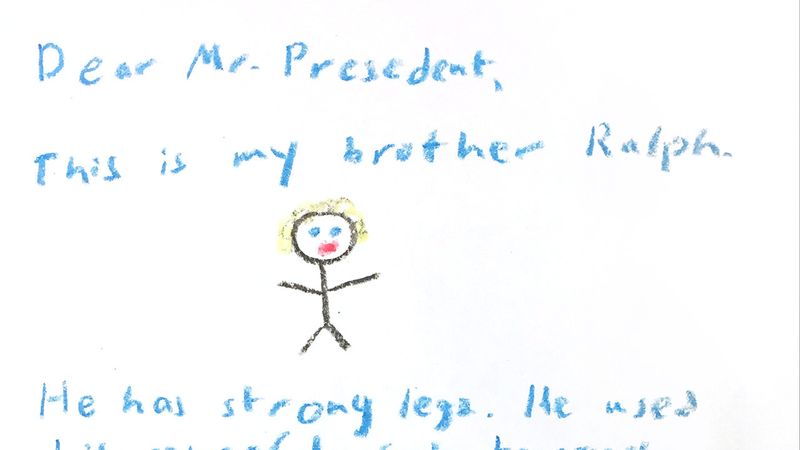 Dear Mr. Presedent,
This is my brother Ralph.
He has strong legs. He used